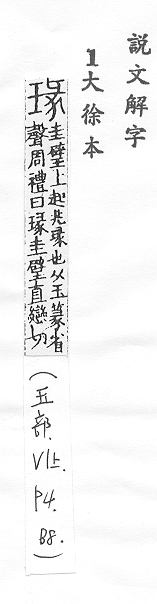 說文解字
1大徐本
瑑
圭璧上起兆瑑也从玉篆省
聲周禮曰瑑圭璧直戀切
(玉部. V1上. P4. B8.)